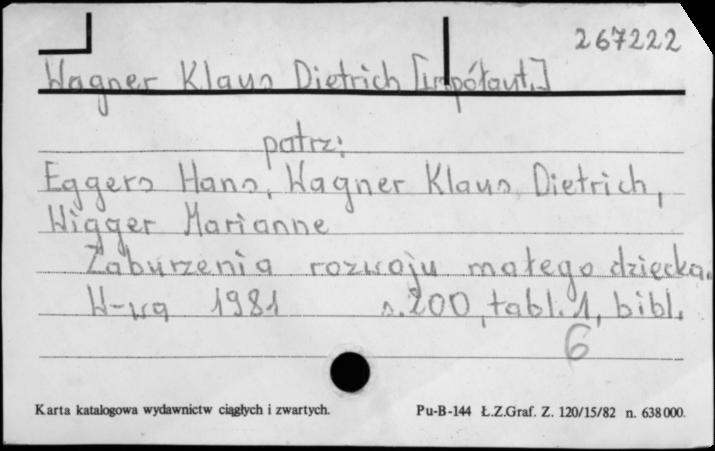 267222
Wagner Klaus Dietrich [współaut.]
patrz:
Eggers Hans, Wagner Klaus Dietrich,
Wigger Marianne
Zaburzenia rozwoju małego dziecka.
W-wa 1981 s. 200, tabl. 1, bibl.
6
Karta katalogowa wydawnictw ciągłych i zwartych. Pu-B-144 Ł.Z.Graf. Z. 120/15/82 n. 638000.